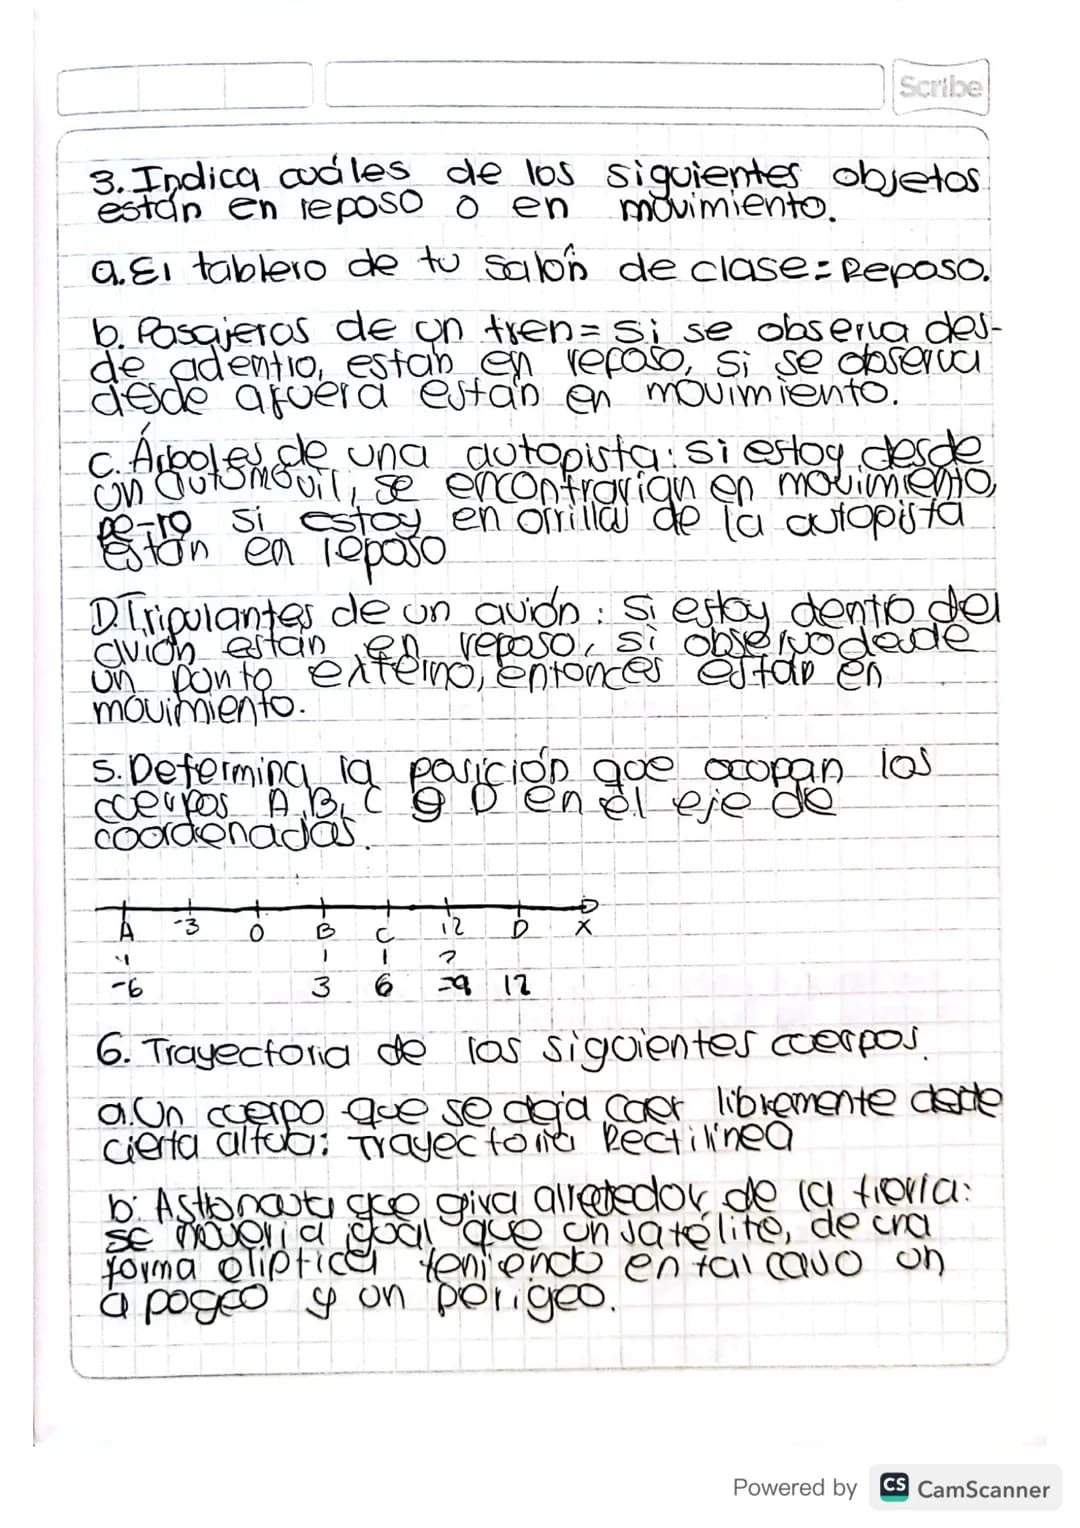 Scribe
3. Indica cuáles de los siguientes objetos
están en reposo o en movimiento.
a. El tablero de tu salón de clase = Reposo.
b. Pasajeros de un tren = si se observa des-
de adentro, están en reposo, si se observa
desde afuera están en movimiento.
c. Árboles de una autopista: si estoy desde
un automóvil, se encontrarían en movimiento,
pe-ro si estoy en orrillas de la autopista
están en reposo
D. Tripulantes de un avión: si estoy dentro del
avión están en reposo, si observo desde
un punto externo, entonces están en
movimiento.
5. Determina la posición que ocupan los
cuerpos A, B, C y D en el eje de
coordenadas.
A -3 0 B C 12 D X
-6 3 6 =9 12
6. Trayectoria de los siguientes cuerpos.
a. Un cuerpo que se deja caer libremente desde
cierta altura: Trayectoria Rectilínea
b. Astronauta que gira alrededor de la tierra:
se movería igual que un satélite, de una
forma elíptica teniendo en tal caso un
apogeo y un perigeo.
Powered by CS CamScanner